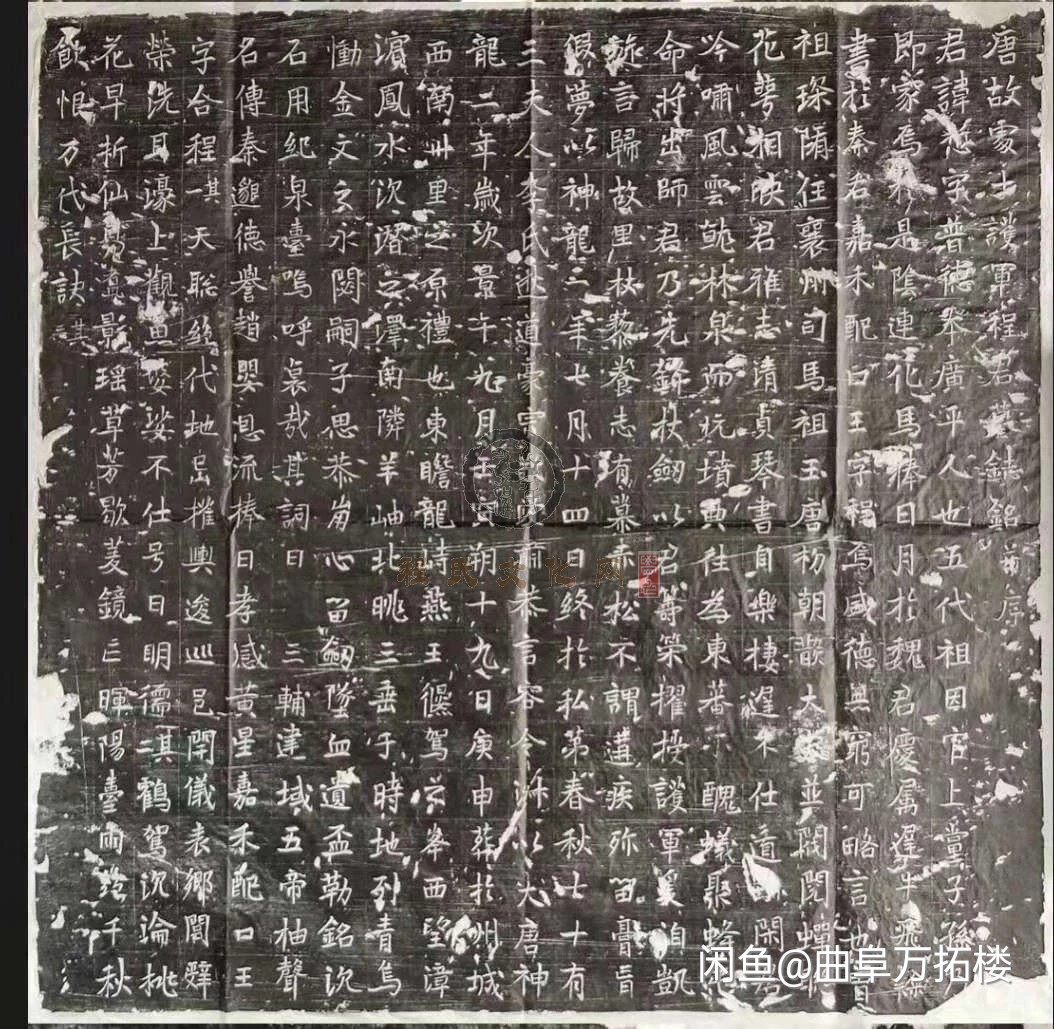 唐故處士護軍程君墓誌銘并序
君諱 字普德 廣平人也五代祖因官上黨子孫
即家焉 是陰連花馬捧日月於魏君慶属犀牛飛
書於秦君嘉禾配口王字程焉盛德無窮可略言也
祖琛隋任襄州司馬祖玉唐初朝散大夫並閥閲蟬
花萼相映君雅志清貞琴書自樂棲遲不仕道閑
吟嘯風雲就林泉而玩墳典往為東蕃 醜蟻聚蜂
命將出師君乃先鋒杖劒以名籌築擢授護軍爰洎凱
旋言歸故里杖藜養志有慕赤松不謂遘疾弥留膏肓
俱夢以神龍二年七月十四日終於私第春秋七十有
三夫人李氏 道 言容令淑以大唐神
龍二年歲次景午九月壬寅朔十九日庚申葬於州城
西南卅里之原禮也東瞻龍 燕王儛駕 峯西望漳
濵鳳水次潞之澤南隣羊岫北眺三垂于時地列青烏
慟金文之永閟嗣子思恭崩心留劒墜血遺盃勒銘沉
石用紀泉臺嗚呼哀哉其詞曰 三輔建域五帝柚聲
名傳秦邈德譽趙嬰恩流捧日孝感黃星嘉禾配口王
字合程其一天聡 代地岳摧輿逡巡邑閈儀表鄉閭辤
榮洗耳濠上觀魚婆娑不仕号曰明德其二鶴駕沉淪桃
花早折仙 影瑶草芳歇菱鏡亡暉陽臺雨 千秋
飲恨万代長訣其三
程氏文化网
闲鱼@曲阜万拓楼